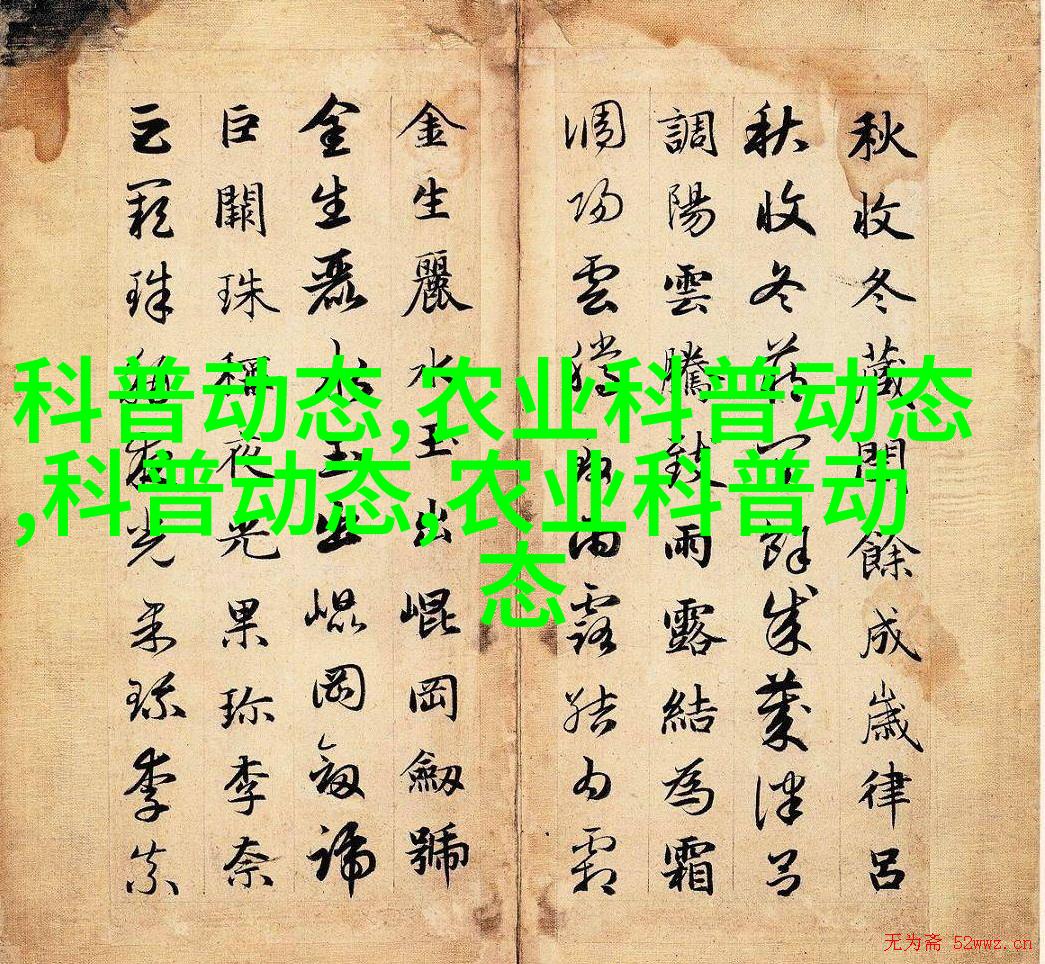 秋收冬藏閏餘成歲律呂
秋收冬藏閏餘成歲律呂
調陽雲騰致雨露結為霜
調陽雲騰致雨露結為霜
金生麗水玉出崐岡劔號
金生麗水玉出崐岡劔號
巨闕珠稱夜光果珍李柰
巨闕珠稱夜光果珍李柰
科普动态,农业科普动态
,科普动态,农业科普动
态
无为斋 52wwz.cn